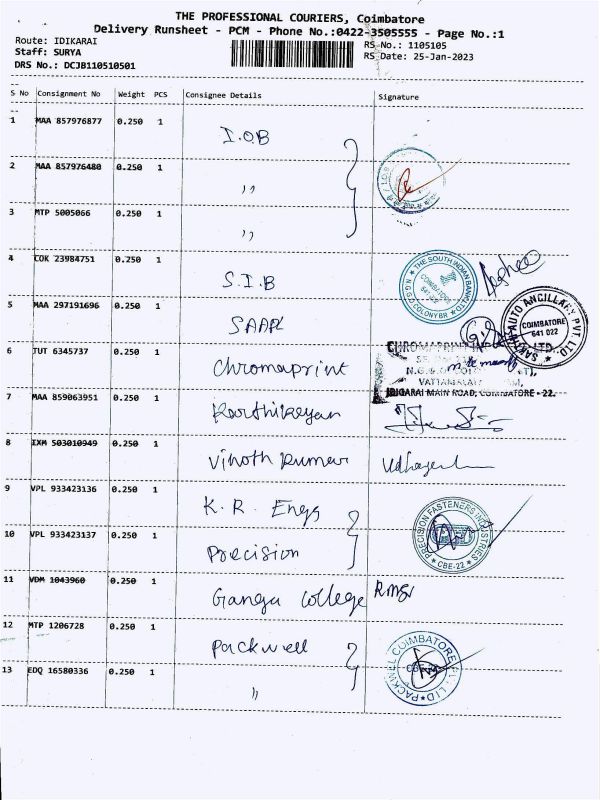 THE PROFESSIONAL COURIERS, Coimbatore
Delivery Runsheet - PCM - Phone No.:0422-3505555 - Page No.:1
Route: IDIKARAI
RS No.: 1105105
Staff: SURYA
RS Date: 25-Jan-2023
DRS No.: DCJB110510501
S No Consignment No Weight PCS Consignee Details Signature
1 MAA 857976877 0.250 1 I.O.B
2 MAA 857976480 0.250 1 ,,
3 MTP 5005066 0.250 1 ,,
4 COK 23984751 0.250 1 S.I.B
THE SOUTH INDIAN BANK LTD
N.G.G.O COLONY BR
COIMBATORE
5 MAA 297191696 0.250 1 SAAPL
SAKTHI AUTO ANCILLARY PVT. LTD
COIMBATORE
641 022
6 TUT 6345737 0.250 1 Chromaprint
CHROMAPRINT
VATTAMALAI
IDIGARAI MAIN ROAD, COIMBATORE - 22.
7 MAA 859063951 0.250 1 Karthikeyan
8 IXM 503010949 0.250 1 Vinoth Kumar
9 VPL 933423136 0.250 1 K. R. Engs
10 VPL 933423137 0.250 1 Precision
PRECISION FASTENERS INDUSTRIES
CBE-22
11 VDM 1043960 0.250 1 Ganga College
12 MTP 1206728 0.250 1 Packwell
13 EDQ 16580336 0.250 1 ,,
PACKWELL COIMBATORE PVT LTD